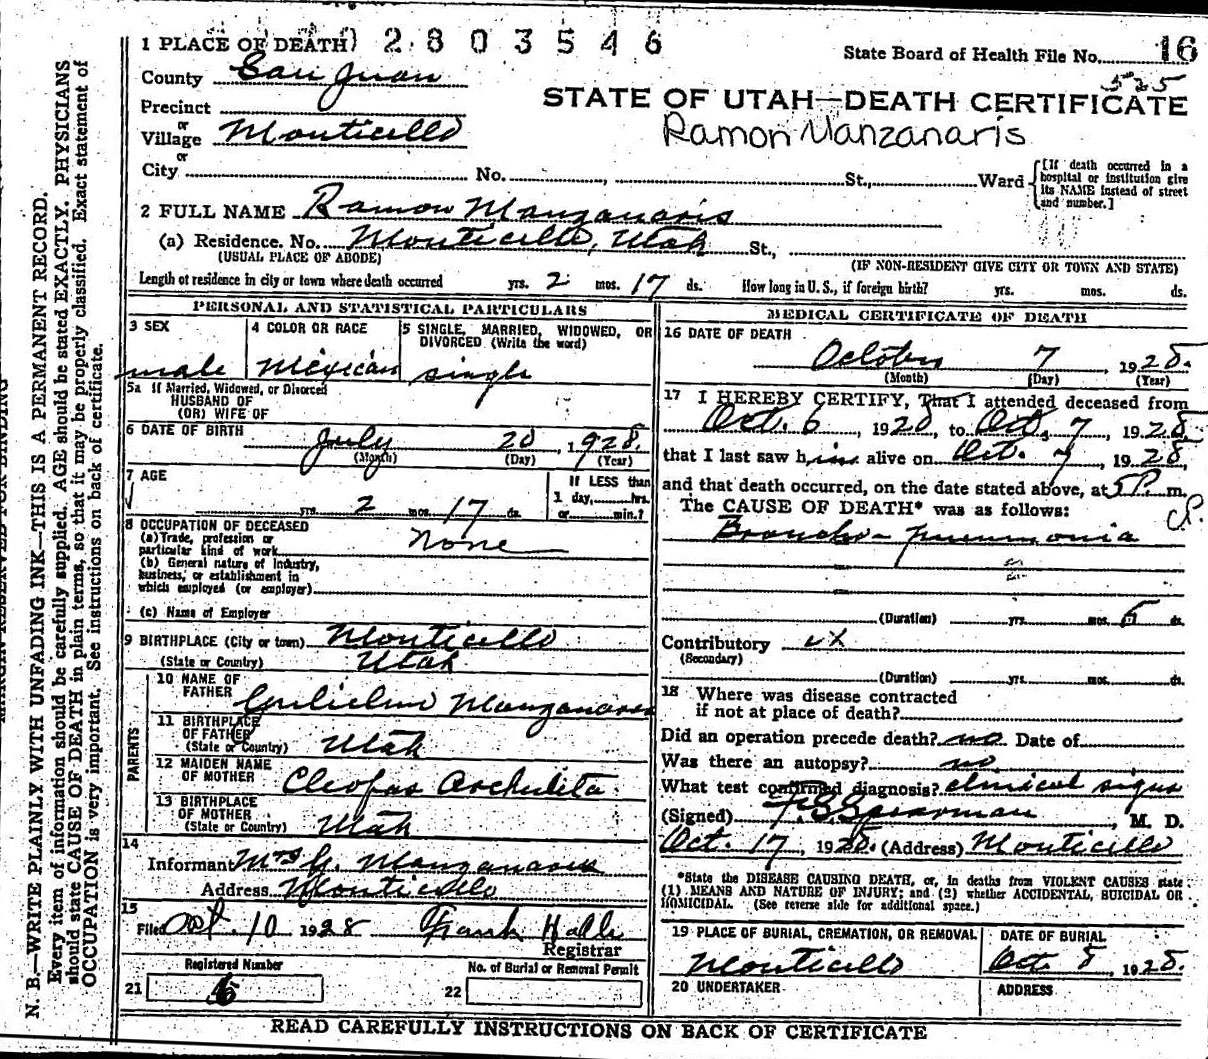 1 PLACE OF DEATH 0 2 8 0 3 5 4 6
State Board of Health File No. 16
County San Juan
525
STATE OF UTAH—DEATH CERTIFICATE
Precinct
or
Village Monticello
Ramon Manzanaris
or
City No. St., Ward
[If death occurred in a hospital or institution give its NAME instead of street and number.]
2 FULL NAME Ramon Manzanaris
(a) Residence. No. Monticello, Utah St.,
(USUAL PLACE OF ABODE)
(IF NON-RESIDENT GIVE CITY OR TOWN AND STATE)
Length of residence in city or town where death occurred yrs. 2 mos. 17 ds. How long in U. S., if foreign birth? yrs. mos. ds.
PERSONAL AND STATISTICAL PARTICULARS
3 SEX
male
4 COLOR OR RACE
Mexican
5 SINGLE, MARRIED, WIDOWED, OR DIVORCED (Write the word)
single
5a If Married, Widowed, or Divorced
HUSBAND OF
(OR) WIFE OF
6 DATE OF BIRTH July 20, 1928.
(Month) (Day) (Year)
7 AGE
yrs. 2 mos. 17 ds.
If LESS than
1 day, hrs.
or min.?
8 OCCUPATION OF DECEASED
(a) Trade, profession or
particular kind of work None
(b) General nature of industry,
business, or establishment in
which employed (or employer)
(c) Name of Employer
9 BIRTHPLACE (City or town) Monticello
(State or Country) Utah
PARENTS
10 NAME OF
FATHER Manzanares
11 BIRTHPLACE
OF FATHER
(State or Country) Utah
12 MAIDEN NAME
OF MOTHER Cleofas Archuleta
13 BIRTHPLACE
OF MOTHER
(State or Country) Utah
14
Informant Mrs G. Manzanares
Address Monticello
15
Filed Oct. 10 1928 Frank Halls
Registrar
Registered Number
21 6
No. of Burial or Removal Permit
22
MEDICAL CERTIFICATE OF DEATH
16 DATE OF DEATH
October 7, 1928.
(Month) (Day) (Year)
17 I HEREBY CERTIFY, That I attended deceased from
Oct. 6, 1928, to Oct. 7, 1928
that I last saw him alive on Oct. 7, 1928,
and that death occurred, on the date stated above, at 5 P. m.
The CAUSE OF DEATH* was as follows:
Broncho-pneumonia
(Duration) yrs. mos. 6 ds.
Contributory
(Secondary)
(Duration) yrs. mos. ds.
18 Where was disease contracted
if not at place of death?
Did an operation precede death? no Date of
Was there an autopsy? no
What test confirmed diagnosis? clinical signs
(Signed) Spearman, M. D.
Oct. 17, 1928. (Address) Monticello
*State the DISEASE CAUSING DEATH, or, in deaths from VIOLENT CAUSES state
(1) MEANS AND NATURE OF INJURY; and (2) whether ACCIDENTAL, SUICIDAL OR
HOMICIDAL. (See reverse side for additional space.)
19 PLACE OF BURIAL, CREMATION, OR REMOVAL
Monticello
DATE OF BURIAL
Oct. 8, 1928.
20 UNDERTAKER
ADDRESS
READ CAREFULLY INSTRUCTIONS ON BACK OF CERTIFICATE
N. B.—WRITE PLAINLY WITH UNFADING INK—THIS IS A PERMANENT RECORD.
Every item of information should be carefully supplied. AGE should be stated EXACTLY. PHYSICIANS
should state CAUSE OF DEATH in plain terms, so that it may be properly classified. Exact statement of
OCCUPATION is very important. See instructions on back of certificate.